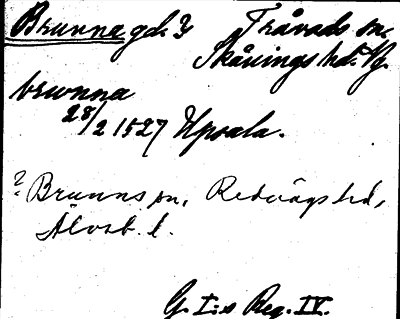 Brunna gd. ? Tråvads sn.
Skånings hd. Vg.
brwnna
28/2 1527 Upsala.
? Brunns sn, Redvägs hd,
Älvsb. l.
G. I:s Reg. IV.